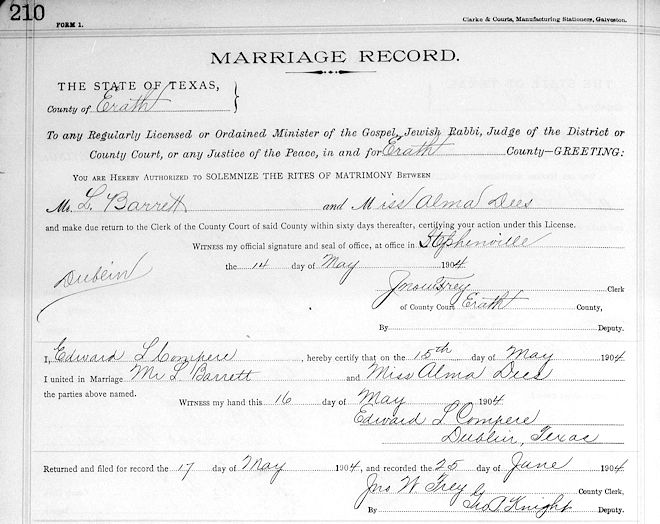 210
FORM 1.
Clarke & Courts, Manufacturing Stationers, Galveston.
MARRIAGE RECORD.
THE STATE OF TEXAS,
County of Erath
To any Regularly Licensed or Ordained Minister of the Gospel, Jewish Rabbi, Judge of the District or
County Court, or any Justice of the Peace, in and for Erath County—GREETING:
YOU ARE HEREBY AUTHORIZED TO SOLEMNIZE THE RITES OF MATRIMONY BETWEEN
Mr. L. Barrett and Miss Alma Dees
and make due return to the Clerk of the County Court of said County within sixty days thereafter, certifying your action under this License.
WITNESS my official signature and seal of office, at office in Stephenville
the 14 day of May 1904.
Dublin
Jno W Frey Clerk
of County Court Erath County,
By Deputy.
I, Edward L Compere, hereby certify that on the 15th day of May 1904
I united in Marriage Mr L Barrett and Miss Alma Dees
the parties above named.
WITNESS my hand this 16 day of May 1904.
Edward L Compere
Dublin, Texas
Returned and filed for record the 17 day of May 1904, and recorded the 25 day of June 1904
Jno W Frey County Clerk,
By Knight Deputy.